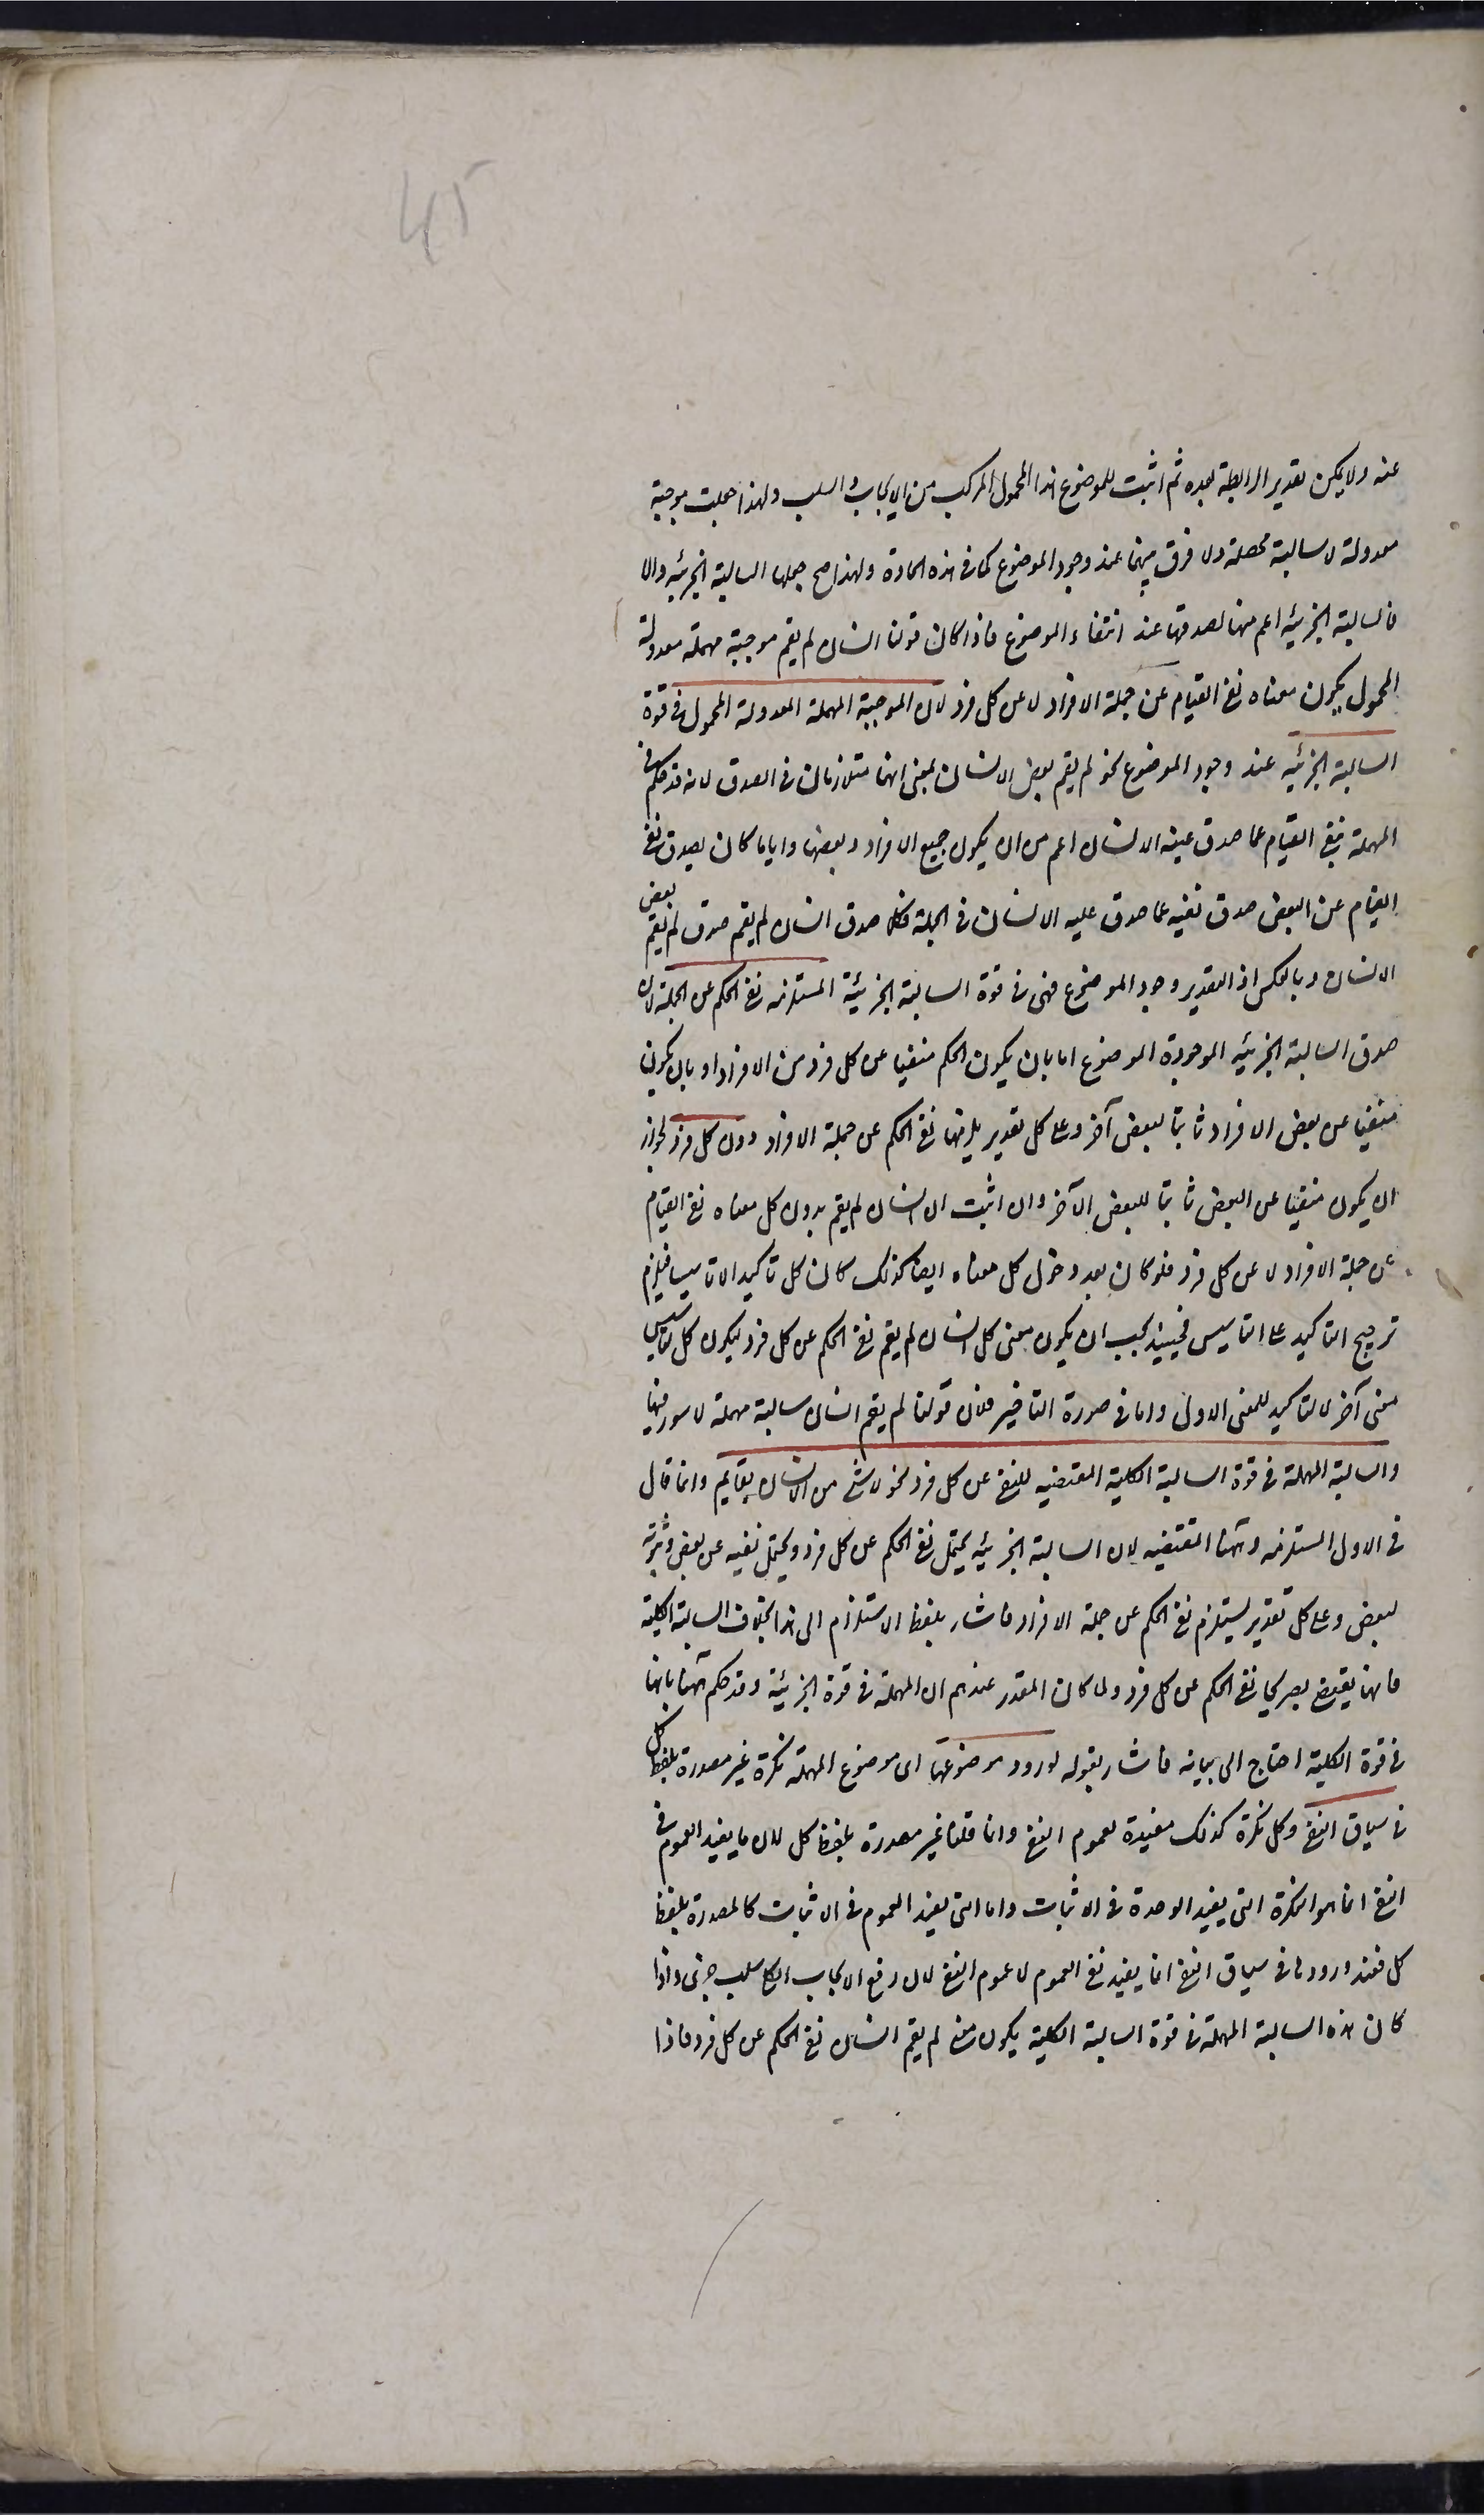 45
عنه ولا يمكن تقدير الرابطة بعده ثم اثبت للموضوع هذا المحمول المركب من الايجاب والسلب ولهذا جعلت موجبة
معدولة لا سالبة محصلة ولا فرق بينهما عند وجود الموضوع كما في هذه المادة ولهذا صح جعلها السالبة الجزئيه والا
فالسالبة الجزئيه اعم منها لصدقها عند انتفاء الموضوع فاذا كان قولنا انسان لم يقم موجبة مهملة معدولة
المحمول يكون معناه نفي القيام عن جملة الافراد لا عن كل فرد لان الموجبة المهملة المعدولة المحمول في قوة
السالبة الجزئيه عند وجود الموضوع نحو لم يقم بعض الانسان بمعنى انهما متلازمان في الصدق لانه قد حكم في
المهملة بنفي القيام عما صدق عليه الانسان اعم من ان يكون جميع الافراد و بعضها واياما كان يصدق نفي
القيام عن البعض صدق نفيه عما صدق عليه الانسان في الجملة فكلما صدق انسان لم يقم صدق لم يقم بعض
الانسان وبالعكس اذ التقدير وجود الموضوع فهي في قوة السالبة الجزئية المستلزمه نفي الحكم عن الجملة لان
صدق السالبة الجزئيه الموجودة الموضوع اما بان يكون الحكم منفيا عن كل فرد من الافراد او بان يكون
منفيا عن بعض الافراد ثابتا لبعض آخر وعلى كل تقدير يلزمها نفي الحكم عن جملة الافراد دون كل فرد لجواز
ان يكون منفيا عن البعض ثابتا للبعض الآخر وان اثبت ان انسان لم يقم بدون كل معناه نفي القيام
عن جملة الافراد لا عن كل فرد فلو كان بعد دخول كل معناه ايضا كذلك كان كل تأكيدا لا تاسيسا فيلزم
ترجيح التاكيد على التاسيس فحينئذ يجب ان يكون معنى كل انسان لم يقم نفي الحكم عن كل فرد ليكون كل لتاسيس
معنى آخر لا لتاكيد للمعنى الاول واما في صورة التاخير فلان قولنا لم يقم انسان سالبة مهملة لا سور فيها
والسالبة المهملة في قوة السالبة الكلية المقتضيه للنفي عن كل فرد نحو لا شئ من الانسان بقايم وانما قال
في الاول المستلزمه وههنا المقتضيه لان السالبة الجزئيه يحتمل نفي الحكم عن كل فرد ويحتمل نفيه عن بعض وثبوته
لبعض وعلى كل تقدير يستلزم نفي الحكم عن جملة الافراد فاشار بلفظ الاستلزام الى هذا بخلاف السالبة الكلية
فانها يقتضي بصريحها نفي الحكم عن كل فرد ولما كان المقرر عندهم ان المهملة في قوة الجزئية وقد حكم ههنا بانها
في قوة الكلية احتاج الى بيانه فاشار بقوله لورود موضوعها اى موضوع المهملة نكرة غير مصدرة بلفظ كل
في سياق النفي وكل نكرة كذلك مفيدة لعموم النفي وانما قلنا غير مصدرة بلفظ كل لان ما يفيد العموم في
النفي انما هو النكرة التي يفيد الوحدة في الاثبات واما التي يفيد العموم في الاثبات كالمصدرة بلفظ
كل فعند ورودها في سياق النفي انما يفيد نفي العموم لا عموم النفي لان رفع الايجاب الكلي سلب جزئى واذا
كان هذه السالبة المهملة في قوة السالبة الكلية يكون معنى لم يقم انسان نفي الحكم عن كل فرد فاذا